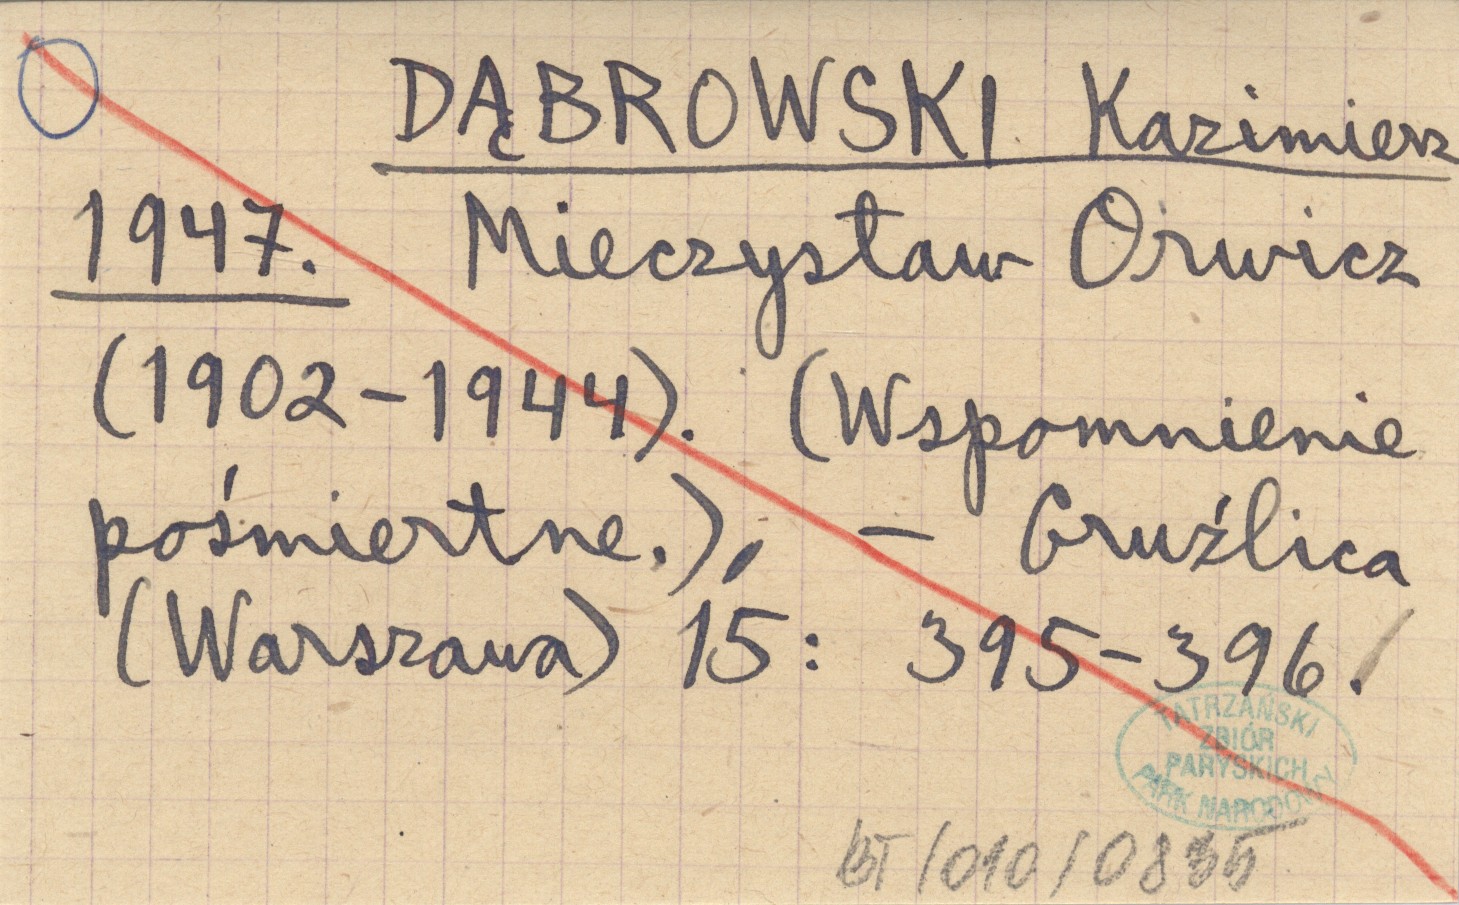 DĄBROWSKI Kazimierz
1947. Mieczysław Orwicz
(1902-1944). (Wspomnienie
pośmiertne.), - Gruźlica
(Warszawa) 15: 395-396.
TATRZAŃSKI
ZBIÓR
PARYSKICH
PARK NARODOWY
BT/010/0835